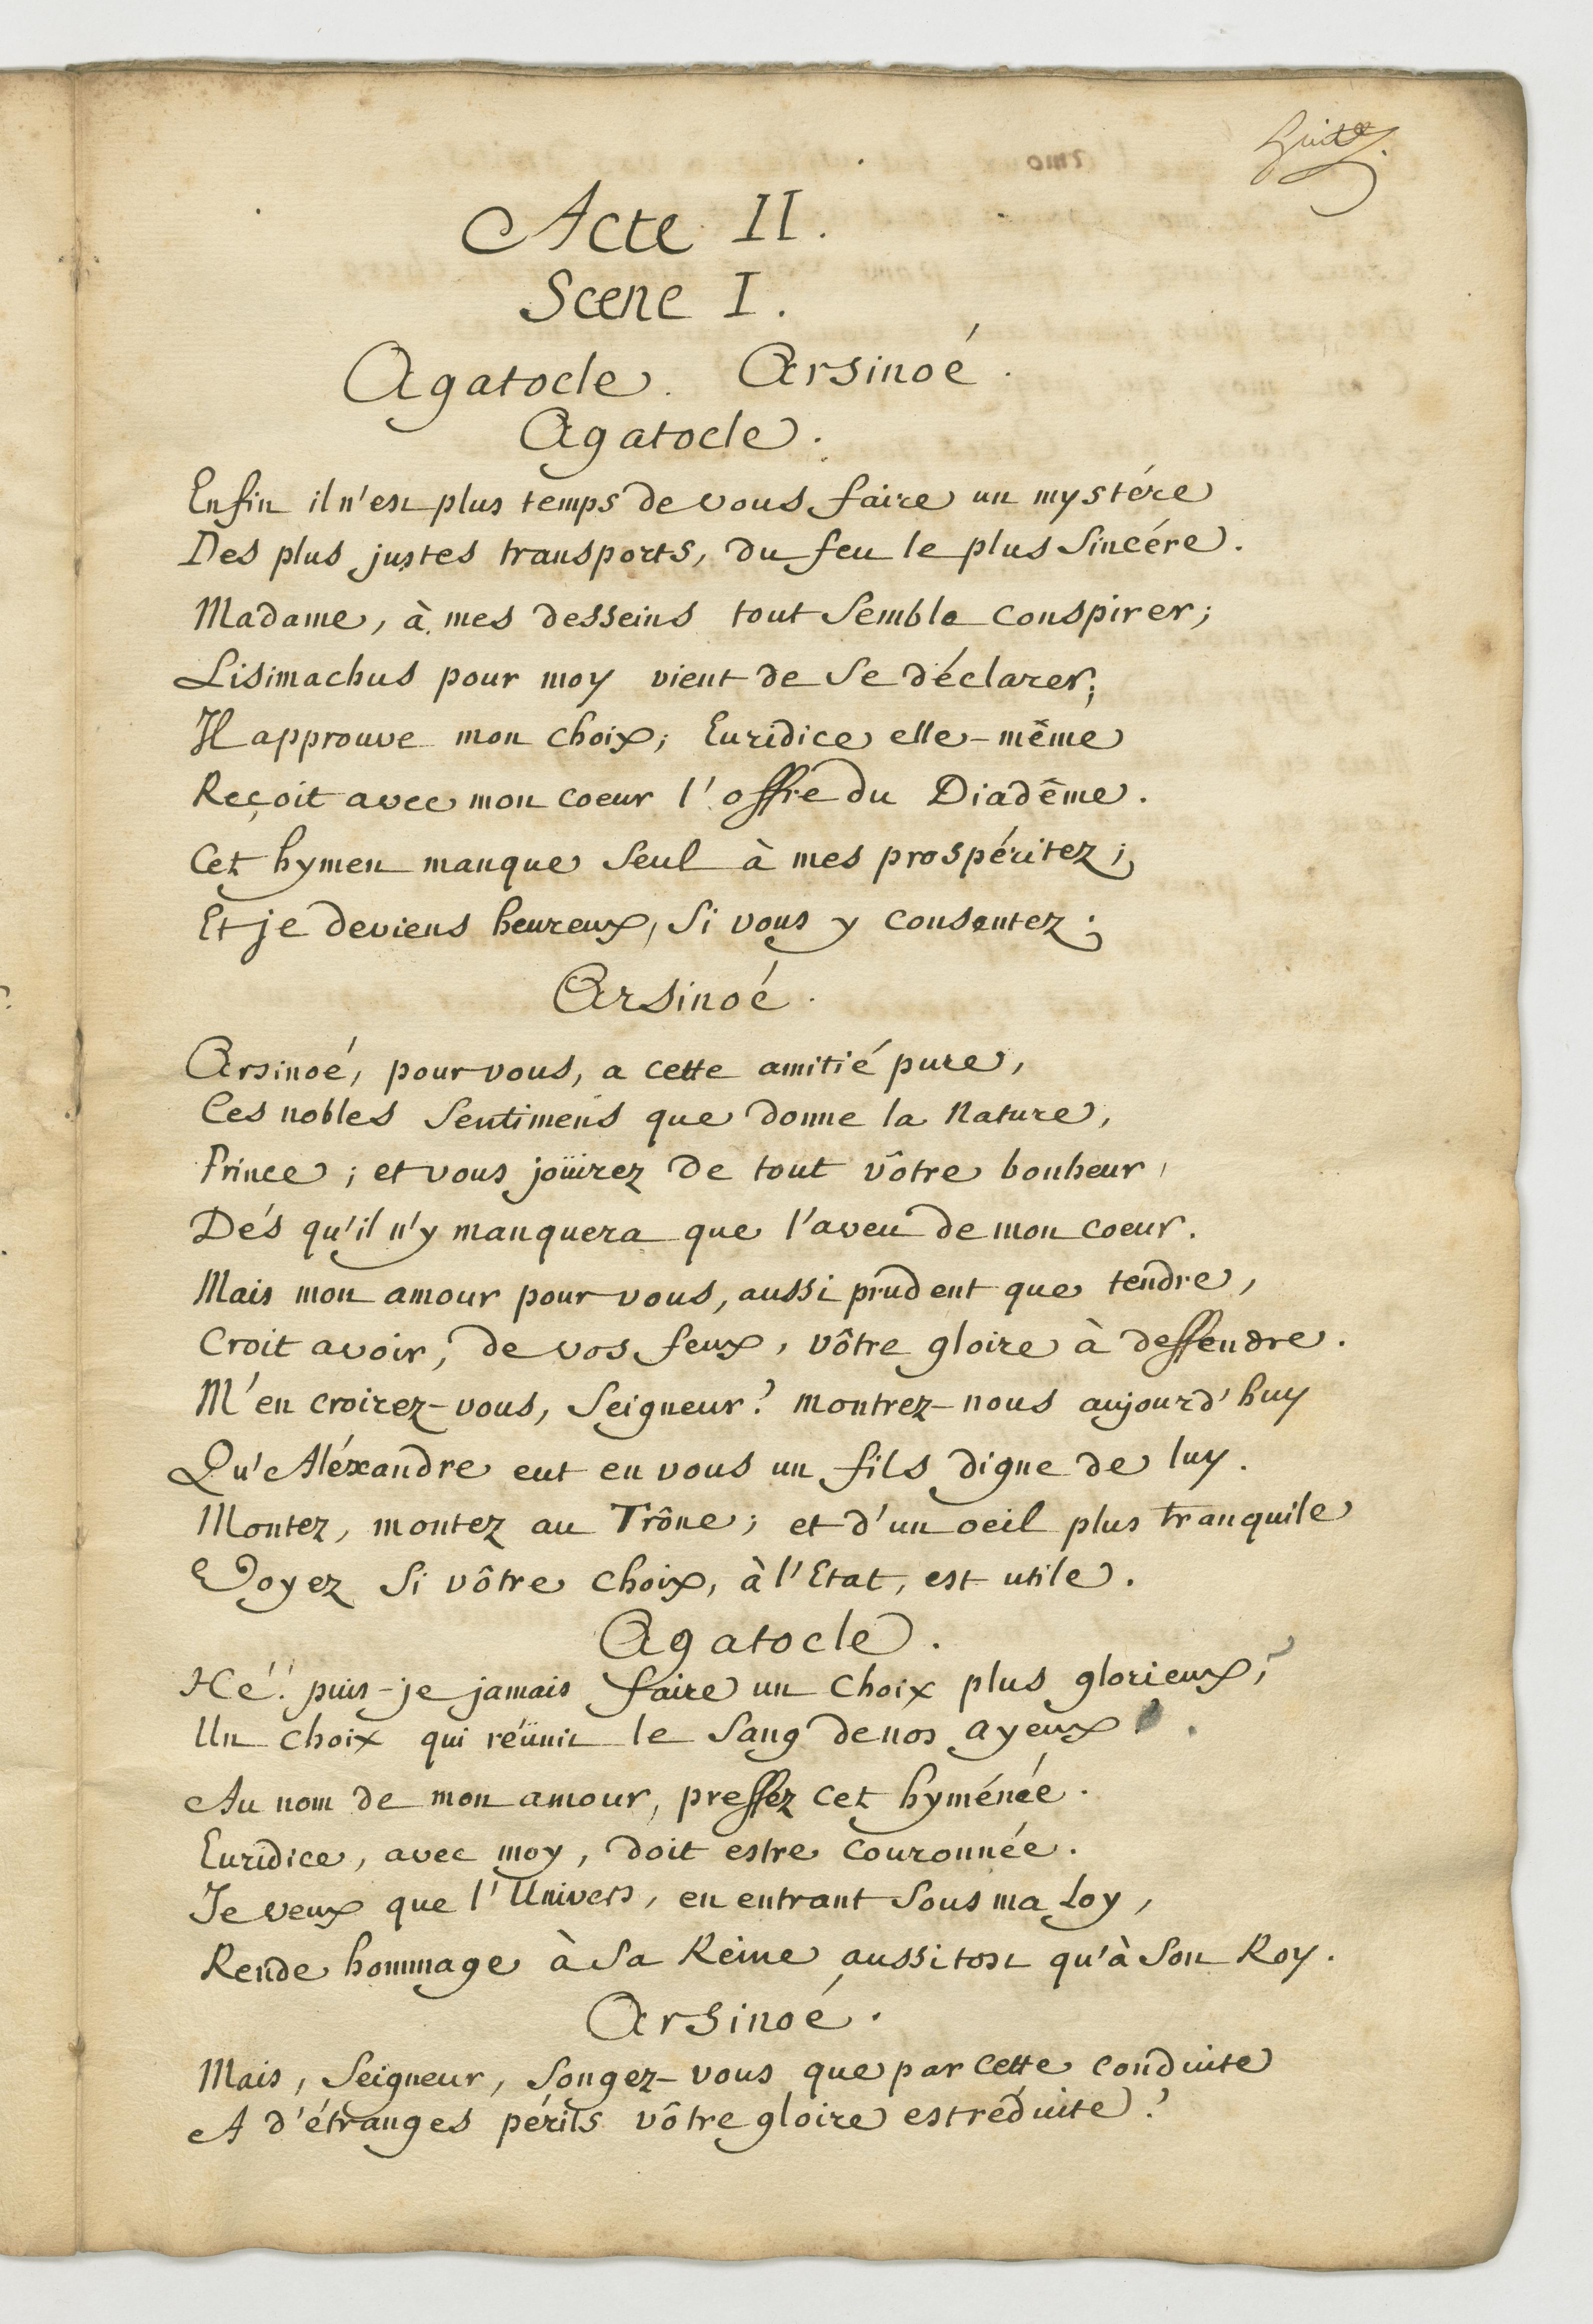 huit
Acte II.
Scene I.
Agatocle. Arsinoé.
Agatocle.
Enfin il n'est plus temps de vous faire un mystére
Des plus justes transports, du feu le plus sincére.
Madame, à mes desseins tout semble conspirer;
Lisimachus pour moy vient de se déclarer;
Il approuve mon choix; Euridice elle-même
Reçoit avec mon coeur l'offre du Diadême.
Cet hymen manque seul à mes prospéritez;
Et je deviens heureux, si vous y consentez;
Arsinoé.
Arsinoé, pour vous, a cette amitié pure,
Ces nobles sentimens que donne la Nature,
Prince; et vous joüirez de tout vôtre bonheur,
Dés qu'il n'y manquera que l'aveu de mon coeur.
Mais mon amour pour vous, aussi prudent que tendre,
Croit avoir, de vos feux, vôtre gloire à deffendre.
M'en croirez-vous, Seigneur? montrez-nous aujourd'huy
Qu'Aléxandre eut en vous un fils digne de luy.
Montez, montez au Trône; et d'un oeil plus tranquile
Voyez si vôtre choix, à l'Etat, est utile.
Agatocle.
Hé! puis-je jamais faire un choix plus glorieux,
Un choix qui réünit le sang de nos ayeux.
Au nom de mon amour, pressez cet hyménée.
Euridice, avec moy, doit estre couronnée.
Je veux que l'Univers, en entrant sous ma Loy,
Rende hommage à sa Reine aussitost qu'à son Roy.
Arsinoé.
Mais, Seigneur, songez-vous que par cette conduite
A d'étranges périls vôtre gloire est réduite?